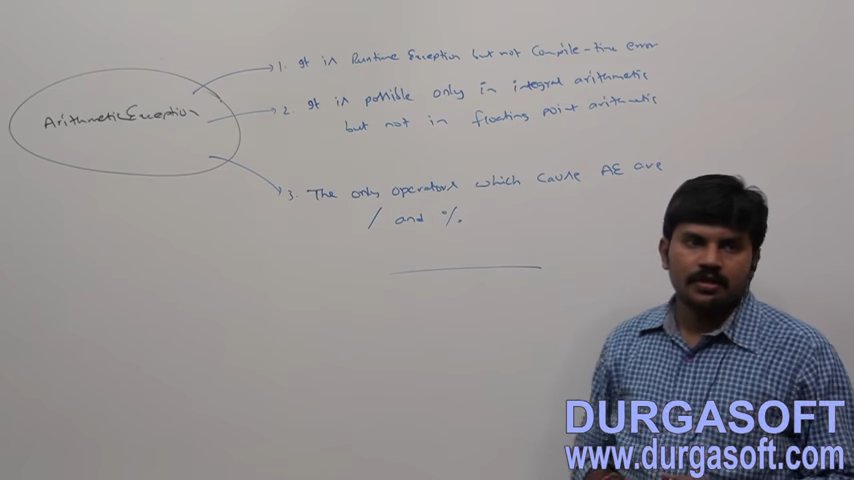 ArithmeticException
1. It is Runtime Exception but not Compile-time error
2. It is possible only in integral arithmetic
but not in floating point arithmetic
3. The only operators which cause AE are
/ and %.
DURGASOFT
www.durgasoft.com